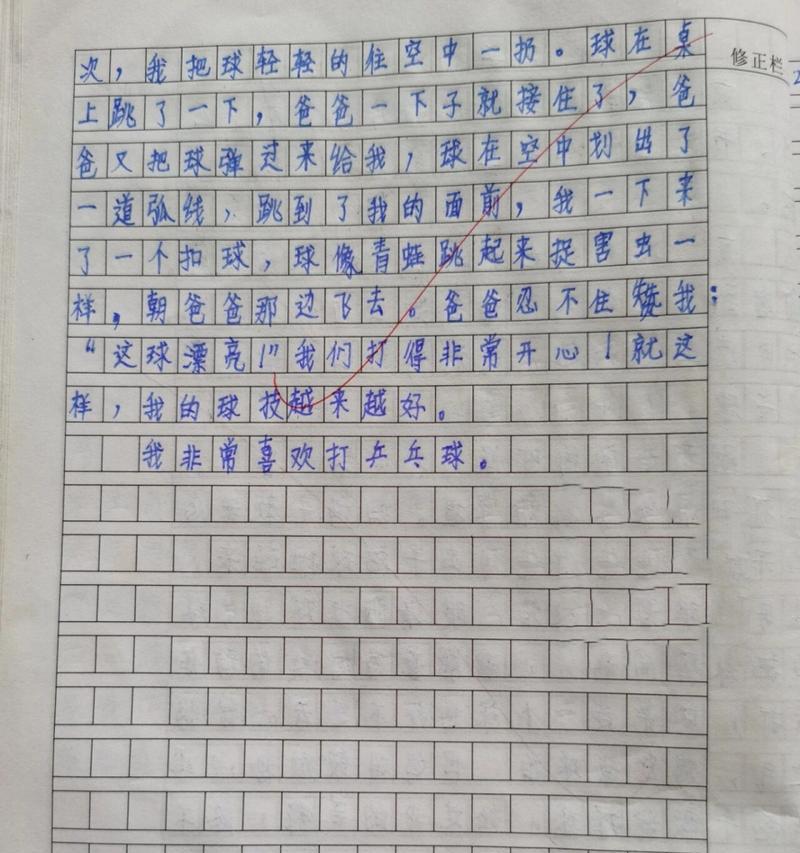 修正栏
次，我把球轻轻的住空中一扔。球在桌
上跳了一下，爸爸一下子就接住了，爸
爸又把球弹过来给我，球在空中划出了
一道弧线，跳到了我的面前，我一下来
了一个扣球，球像青蛙跳起来捉害虫一
样，朝爸爸那边飞去。爸爸忍不住赞我：
“这球漂亮！”我们打得非常开心！就这
样，我的球技越来越好。
我非常喜欢打乒乓球。